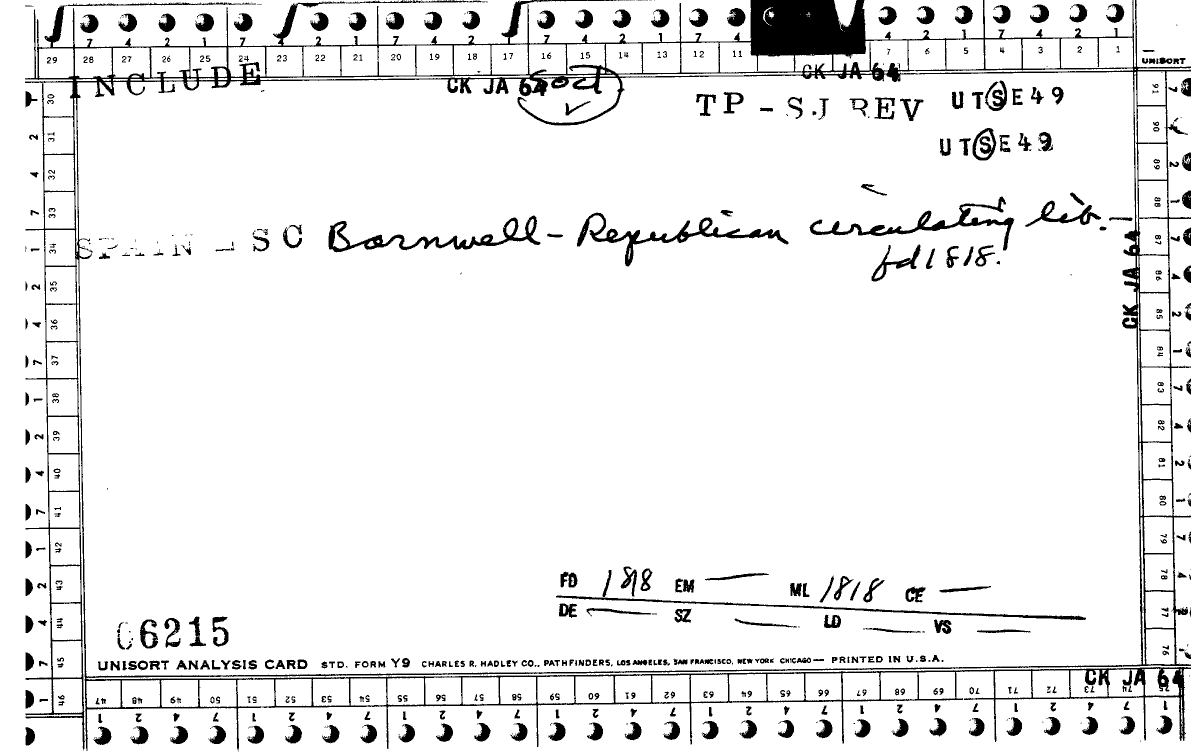 7 4 2 1 7 4 2 1 7 4 2 1 7 4 2 1 7 4 7 4 2 1 7 4 2 1
29 28 27 26 25 24 23 22 21 20 19 18 17 16 15 14 13 12 11 7 6 5 4 3 2 1
UNISORT
INCLUDE CK JA 64 sod CK JA 64
TP - SJ REV UTSE49
UTSE49
SPAIN - SC Barnwell - Republican circulating lib. -
fd 1818.
CK JA 64
FD 1818 EM — ML 1818 CE —
DE — SZ — LD — VS —
06215
UNISORT ANALYSIS CARD STD. FORM Y9 CHARLES R. HADLEY CO., PATHFINDERS, LOS ANGELES, SAN FRANCISCO, NEW YORK CHICAGO — PRINTED IN U.S.A.
CK JA 64
47 48 49 50 51 52 53 54 55 56 57 58 59 60 61 62 63 64 65 66 67 68 69 70 71 72 73 74 75
1 2 4 7 1 2 4 7 1 2 4 7 1 2 4 7 1 2 4 7 1 2 4 7 1 2 4 7 1
30 31 32 33 34 35 36 37 38 39 40 41 42 43 44 45 46
91 90 89 88 87 86 85 84 83 82 81 80 79 78 77 76